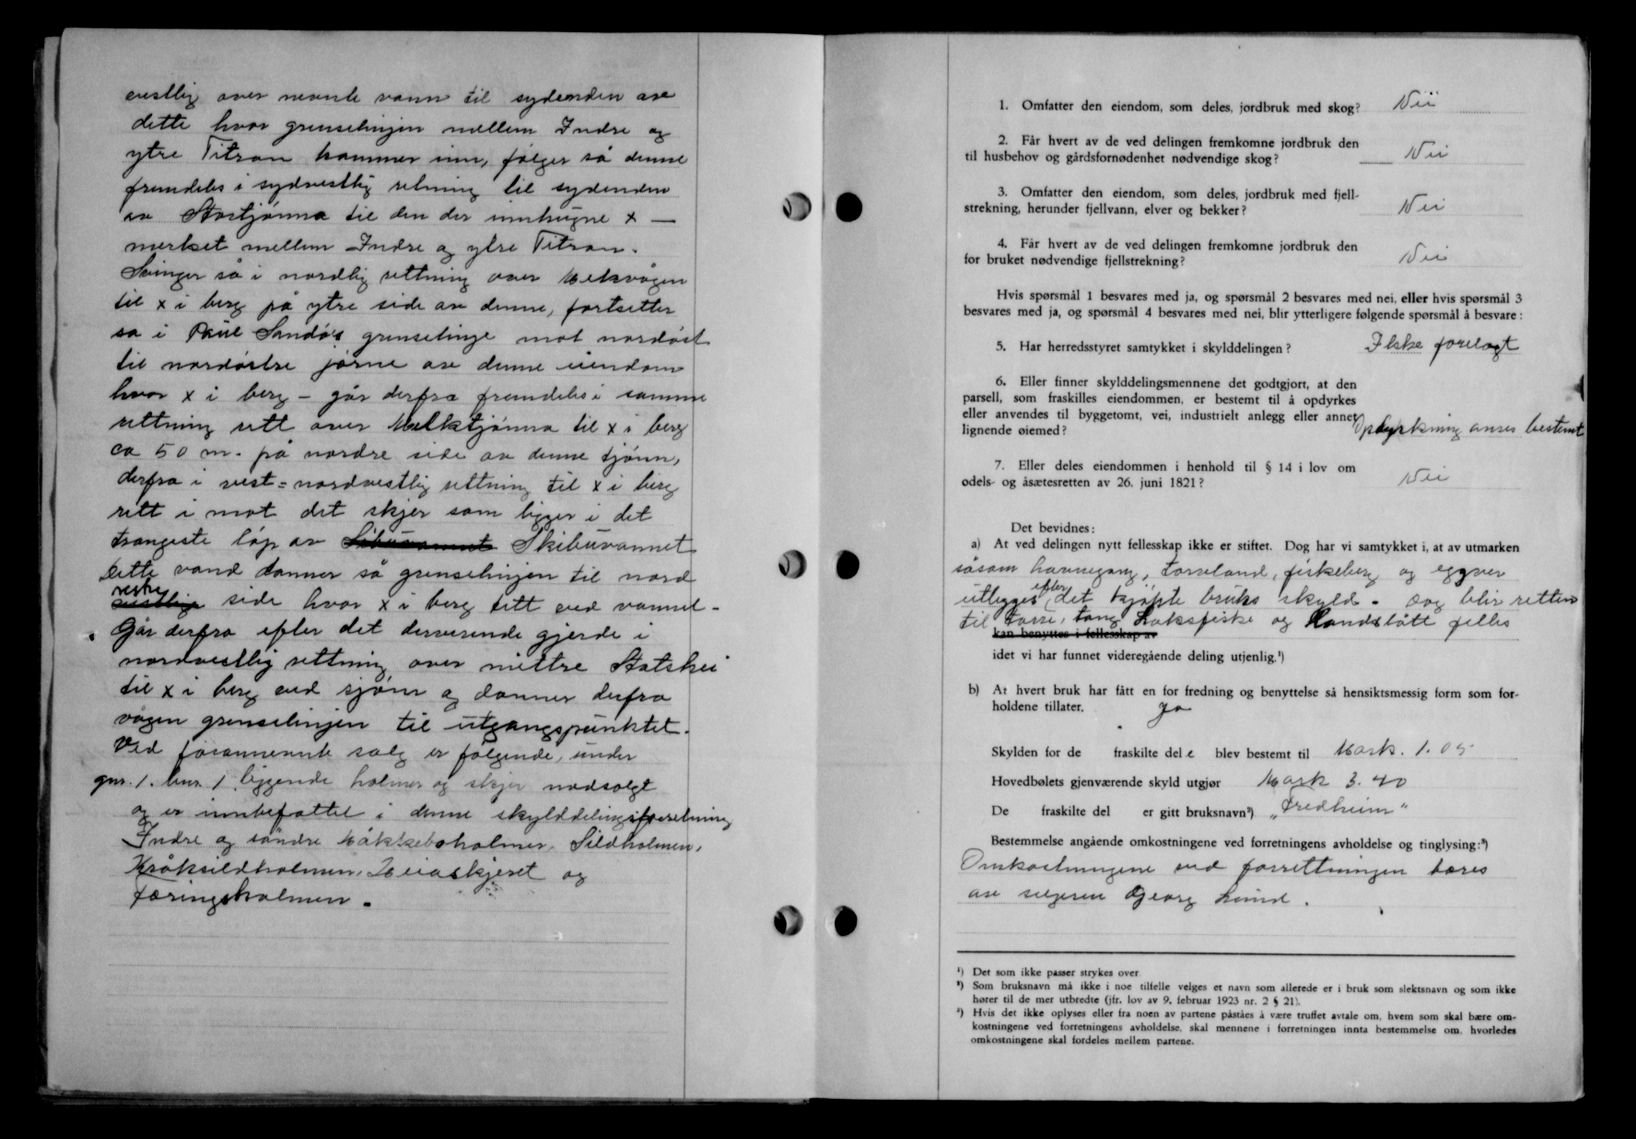 vestlig over nevnte vann til sydenden av
dette hvor grenselinjen mellem Indre og
ytre Titran kommer inn, følger så denne
fremdeles i sydvestlig retning til sydenden
av Stortjønna til den der innhugne x —
merket mellem Indre og ytre Titran.
Svinger så i nordlig rettning over
til x i berg på ytre side av denne, fortsetter
så i Paul Sandøs grenselinje mot nordøst
til nordøstre jørne av denne eiendom
hvor x i berg – går derfra fremdeles i samme
rettning rett over Melktjønna til x i berg
ca 50 m. på nordre side av denne tjønn,
derfra i vest = nordvestlig rettning til x i berg
rett i mot det skjer som ligger i det
trangeste løp av Skibuvannet
Dette vand danner så grenselinjen til nord
vestre side hvor x i berg tett ved vannet –
Går derfra efter det derværende gjerde i
nordvestlig rettning over mittre Statshei
til x i berg ved sjøen og danner derfra
vågen grenselinjen til utgangspunktet.
Ved forannevnte salg er følgende, under
gnr. 1. bnr. 1 liggende holmer og skjer medsolgt
og er innbefattet i denne skylddelingsforretning
Indre og søndre Sildholmen,
Kråksildholmen, og
Færingsholmen.
1. Omfatter den eiendom, som deles, jordbruk med skog? Nei
2. Får hvert av de ved delingen fremkomne jordbruk den
til husbehov og gårdsfornødenhet nødvendige skog? Nei
3. Omfatter den eiendom, som deles, jordbruk med fjell-
strekning, herunder fjellvann, elver og bekker? Nei
4. Får hvert av de ved delingen fremkomne jordbruk den
for bruket nødvendige fjellstrekning? Nei
Hvis spørsmål 1 besvares med ja, og spørsmål 2 besvares med nei, eller hvis spørsmål 3
besvares med ja, og spørsmål 4 besvares med nei, blir ytterligere følgende spørsmål å besvare:
5. Har herredsstyret samtykket i skylddelingen? Ikke forelagt
6. Eller finner skylddelingsmennene det godtgjort, at den
parsell, som fraskilles eiendommen, er bestemt til å opdyrkes
eller anvendes til byggetomt, vei, industrielt anlegg eller annet
lignende øiemed? Opdyrkning anses bestemt
7. Eller deles eiendommen i henhold til § 14 i lov om
odels- og åsætesretten av 26. juni 1821? Nei
Det bevidnes:
a) At ved delingen nytt fellesskap ikke er stiftet. Dog har vi samtykket i, at av utmarken
såsom havnegang, torveland, fiskeberg og eggver
utlegges efter det kjøpte bruks skyld. Dog blir retten
til tarre, tang Laksfiske og Landslått felles
kan benyttes i fellesskap av
idet vi har funnet videregående deling utjenlig.¹)
b) At hvert bruk har fått en for fredning og benyttelse så hensiktsmessig form som for-
holdene tillater. Ja
Skylden for de fraskilte dele blev bestemt til Mark. 1.05
Hovedbølets gjenværende skyld utgjør Mark 3.40
De fraskilte del er gitt bruksnavn²) „Fredheim“
Bestemmelse angående omkostningene ved forretningens avholdelse og tinglysing:³)
Omkostningene ved forrettningen bæres
av selgeren Georg Lund.
¹) Det som ikke passer strykes over
²) Som bruksnavn må ikke i noe tilfelle velges et navn som allerede er i bruk som slektsnavn og som ikke
hører til de mer utbredte (jfr. lov av 9. februar 1923 nr. 2 § 21).
³) Hvis det ikke oplyses eller fra noen av partene påståes å være truffet avtale om, hvem som skal bære om-
kostningene ved forretningens avholdelse, skal mennene i forretningen innta bestemmelse om, hvorledes
omkostningene skal fordeles mellem partene.